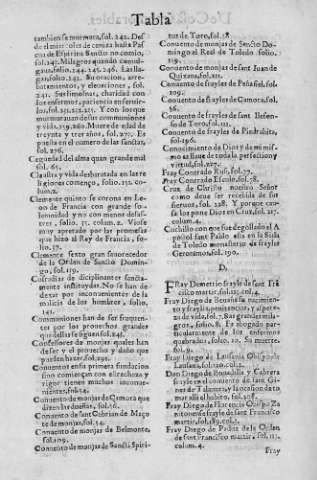 Tabla
tambien se murmura, fol. 242. Des
de el miercoles de ceniza hasta Pas
cua de Espiritu Sancto no comio,
fol. 243. Milagros quando comul-
gaua, folio. 244. 245. 246. Las lla-
gas, folio. 242. Su oracion, arro-
batamientos, y eleuaciones, fol.
241. Sus limosnas, charidad con
los enfermos, paciencia en sufrir-
los,
que murmurauan de sus comuniones
y vida, Muere de edad de
treynta y tres años, fol. 270. Es
puesta en el numero de las sanctas,
fol. 276.
Ceguedad del alma quan grande mal
fol. 65.
Claustra y vida desbaratada en las re
ligiones començo, folio. 151. co-
lun. 2.
Clemente quinto se corona en Leon
de Francia con grande so-
lemnidad y no con menor desas-
tres, folio. 51. colum. 2. Viose
muy apretado por las promesas
que hizo al Rey de Francia, fo-
lio. 57.
Clemente sexto gran fauorecedor
de la Orden de Sancto Domin-
go, fol. 119.
Cofradias de disciplinantes sancta-
mente instituydas. No se han de
dexar por inconuenientes de la
milicia de los hombres, folio,
141.
Communiones han de ser frequen-
tes por los prouechos grandes
que dellas se siguen fol. 246.
Confessores de monjas quales han
de ser y el prouecho y daño que
pueden hazer, fol. 242.
Conuento en su primera fundacion
sino comiençan con estrechura y
rigor tienen muchos inconue-
nientes, fol. 94.
Conuento de monjas de Çamora que
dizen las dueñas, fol. 26.
Conuento de San Cebrian de Maço
te de monjas, fol. 54.
Conuento de monjas de Belmonte,
fol. 109.
Conuento de monjas de Sancti Spiri-
tus de Toro, fol. 58
Conuento de monjas de Sancto Do-
mingo el Real de Toledo folio,
Conuento de monjas de sant Juan de
Quixana, fol.
Conuento de frayles de Peñafiel. fol.
109.
Conuento de frayles de Çamora, fol.
26.
Conuento de frayles de sant Ilefon-
so de Toro, fol.
Conuento de frayles de Piedrahita,
fol. 196.
Conocimiento de Dios y de si mis-
mo es llaue de toda la perfection y
virtud, fol. 227.
Fray Conrado Rus, fol. 37.
Fray Conrado Esculo, fol. 58.
Cruz de Christo nuestro Señor
como deue ser recebida de sus
sieruos, fol. 228. Y porque cau-
sa los pone Dios en Cruz, fol. 227.
colum. 4.
Cuchillo con que fue degollado el A
postol sant Pablo esta en la Sisla
de Toledo monasterio de frayles
Geronimos, fol. 190.
D.
FRay Demetrio frayle de sant Frã
cisco martir, fol. 115. col. 4.
Fray Diego de Benauste su nacimien-
to y frayla, penitencias, y aspere-
za de vida, fol. 7. Sus grandes mila-
gros, folio. 8. Es abogado par-
ticularmente de los enfermos
quebrados, folio. 10. Su muerte.
fol. 9.
Fray Diego de Lausania Obispo de
Lausana, folio 120. col. 2.
Don Diego de Bouadilla y Cabrera
frayle en el conuento de sant Gi-
nes de Talauera, y la ocasion de to
mar alli el habito, fol. 208.
Fray Diego de Florencia Obispo Za
nitonense frayle de sant Francisco
martir, fol. 189. col. 2.
Fray Diego de Padua de la Orden
de sant Francisco martir, fol. 115.
colum. 4.
Fray